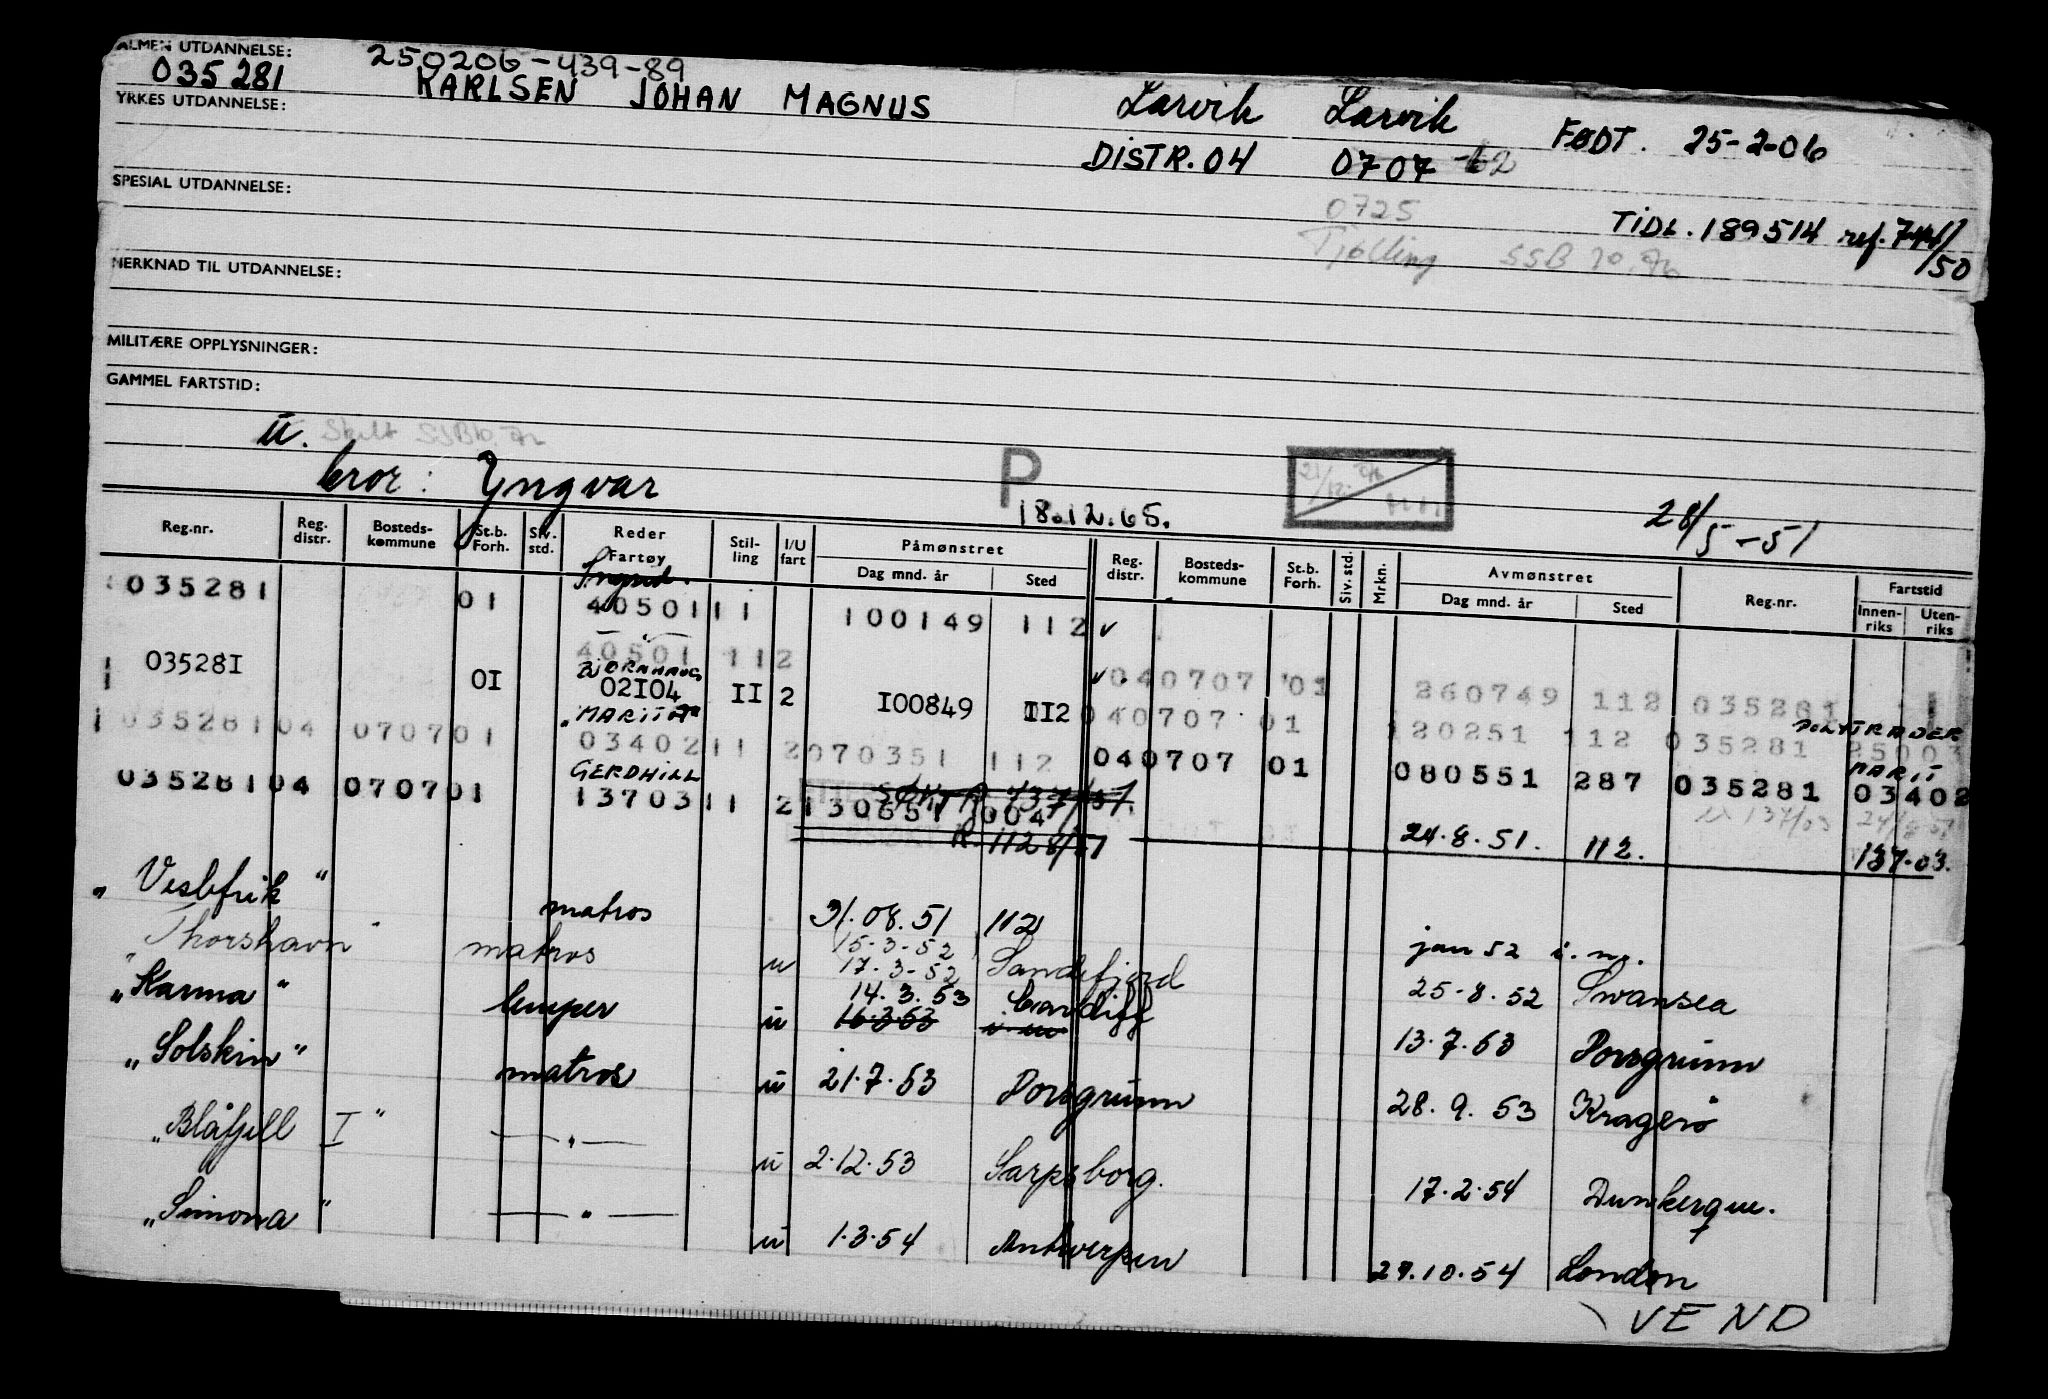 ALMEN UTDANNELSE: 250206-439-89
035281 KARLSEN JOHAN MAGNUS Larvik Larvik FØDT. 25-2-06
YRKES UTDANNELSE:
DISTR. 04 0707 -62
SPESIAL UTDANNELSE:
0725
TIDL. 189514 ref. 744/50
Tjølling SSB 10.
MERKNAD TIL UTDANNELSE:
MILITÆRE OPPLYSNINGER:
GAMMEL FARTSTID:
ū.
bror: Yngvar P
18.12.65. 28/5-51
Reg.nr. Reg. distr. Bosteds-kommune St.b. Forh. Siv. std. Reder Fartøy Stil-ling I/U fart Påmønstret Dag mnd. år Sted Reg. distr. Bosteds-kommune St.b. Forh. Siv. std. Mrkn. Avmønstret Dag mnd. år Sted Reg.nr. Fartstid Innen-riks Uten-riks
035281 01 40501 11 100149 112 ✓
40501 112
BJØRNHAUG
035281 01 02104 11 2 100849 112 040707 01 260749 112 035281
"MARIT" POLYTRADER
035281 04 0707 01 03402 11 2 070351 112 040707 01 120251 112 035281 25003
GERDHILL MARIT
035281 04 0707 01 13703 11 2 130651 004 040707 01 080551 287 035281 03402
R. 1128/51 24.8.51. 112. 137.03.
"Vestfrik" matros 31.08.51 112 jan 52 i. m.
"Thorshavn" matros u 15-3-52 17.3-52 Sandefjord 25-8.52 Swansea
"Karma" lemper ū 14.3.53 Cardiff 16.3.53 i. m. 13.7.53 Porsgrunn
"Solskin" matros ū 21.7.53 Porsgrunn 28.9.53 Kragerø
"Blåfjell I" — " — ū 2.12.53 Sarpsborg. 17.2.54 Dunkerque.
"Simona" — " — ū 1.3.54 Antwerpen 27.10.54 London
VEND